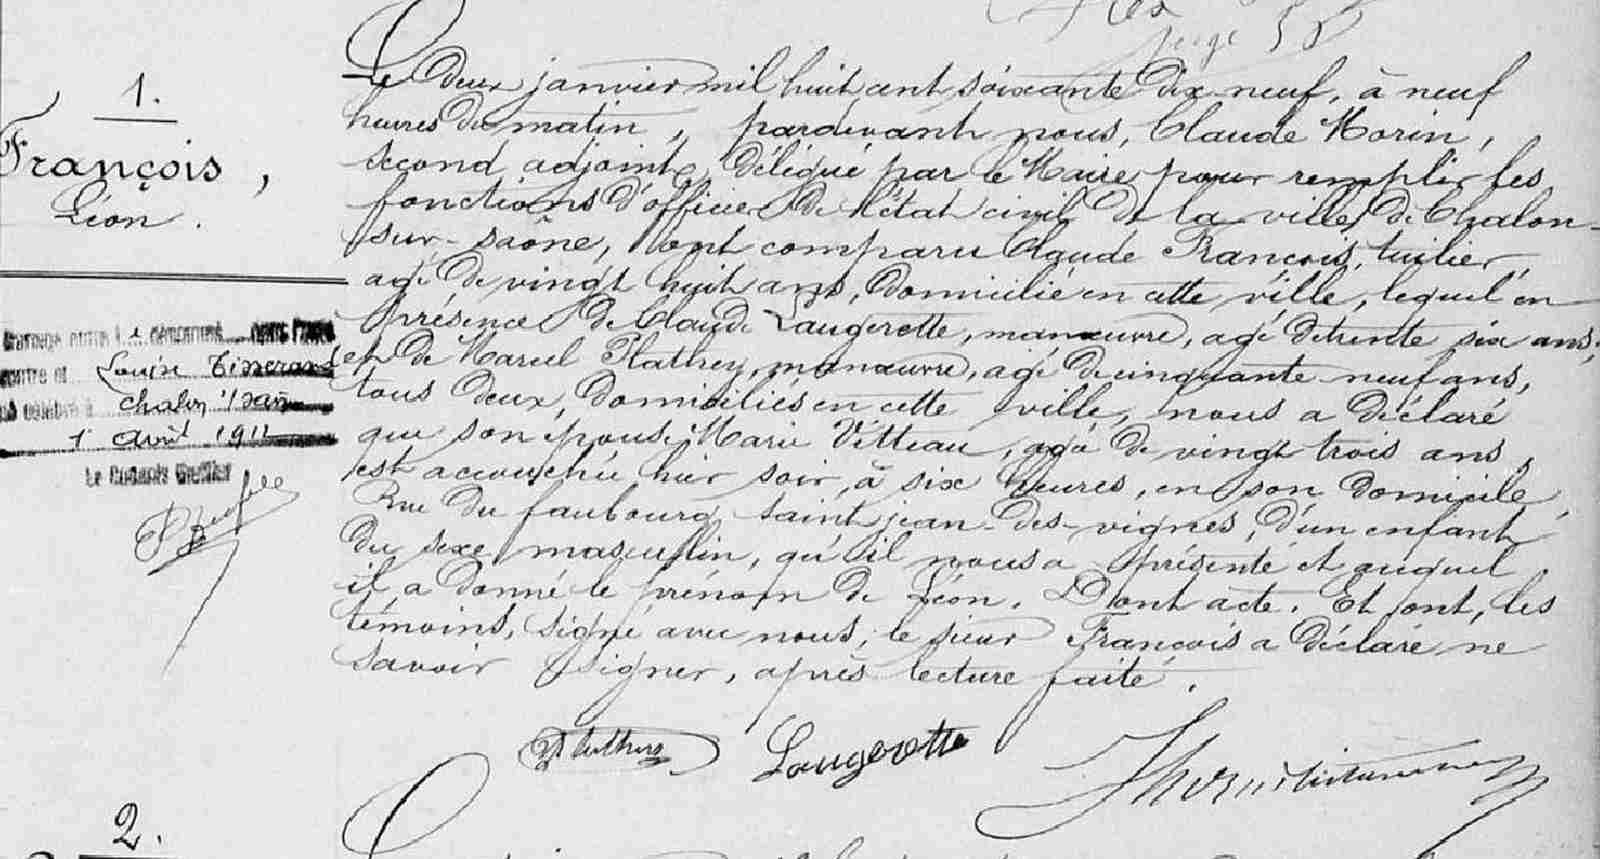 1.
François,
Léon.
Le deux janvier mil huit cent soixante dix neuf, à neuf
heures du matin, pardevant nous, Claude Morin,
second adjoint, délégué par le Maire pour remplir les
fonctions d'officier de l'état civil de la ville de Chalon-
sur-saône, ont comparu Claude François, tuilier,
agé de vingt huit ans, domicilié en cette ville, lequel en
présence de Claude Laugerotte, manœuvre, agé de trente six ans,
et de Marcel Plathey, manœuvre, agé de cinquante neuf ans,
tous deux domiciliés en cette ville, nous a déclaré
que son épouse Marie Vitteau, agée de vingt trois ans,
est accouchée hier soir, à six heures, en son domicile,
Rue du faubourg saint jean-des-vignes, d'un enfant
du sexe masculin, qu'il nous a présenté et auquel
il a donné le prénom de Léon. Dont acte. Et ont, les
témoins, signé avec nous; le sieur François a déclaré ne
savoir signer, après lecture faite.
Louise Tisserand
Chalon s/Saône
1 avril 1911
Le Commis Greffier
Laugerotte
2.